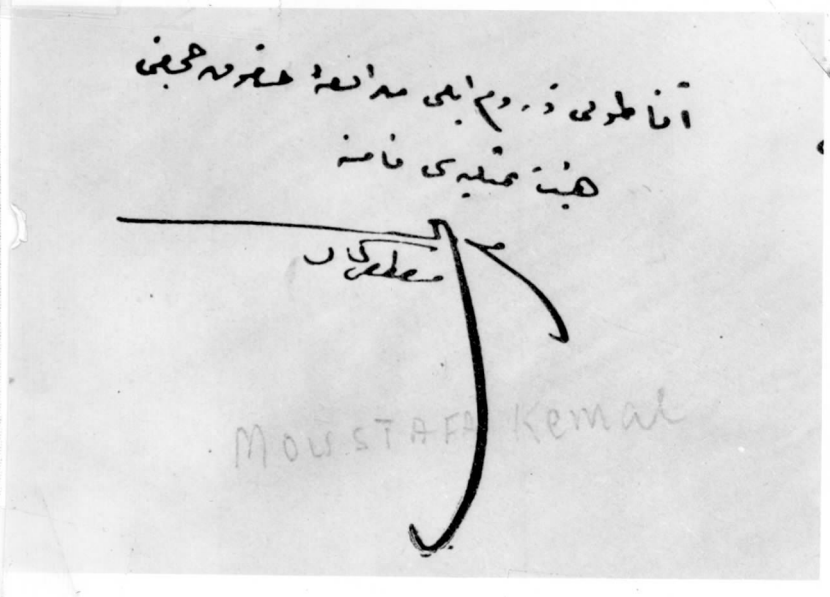 آناطولی و روم ایلی مدافعهٔ حقوق جمعیتی
هیئت تمثیلیه‌سی نامنه
مصطفی کمال
MOUSTAFA Kemal